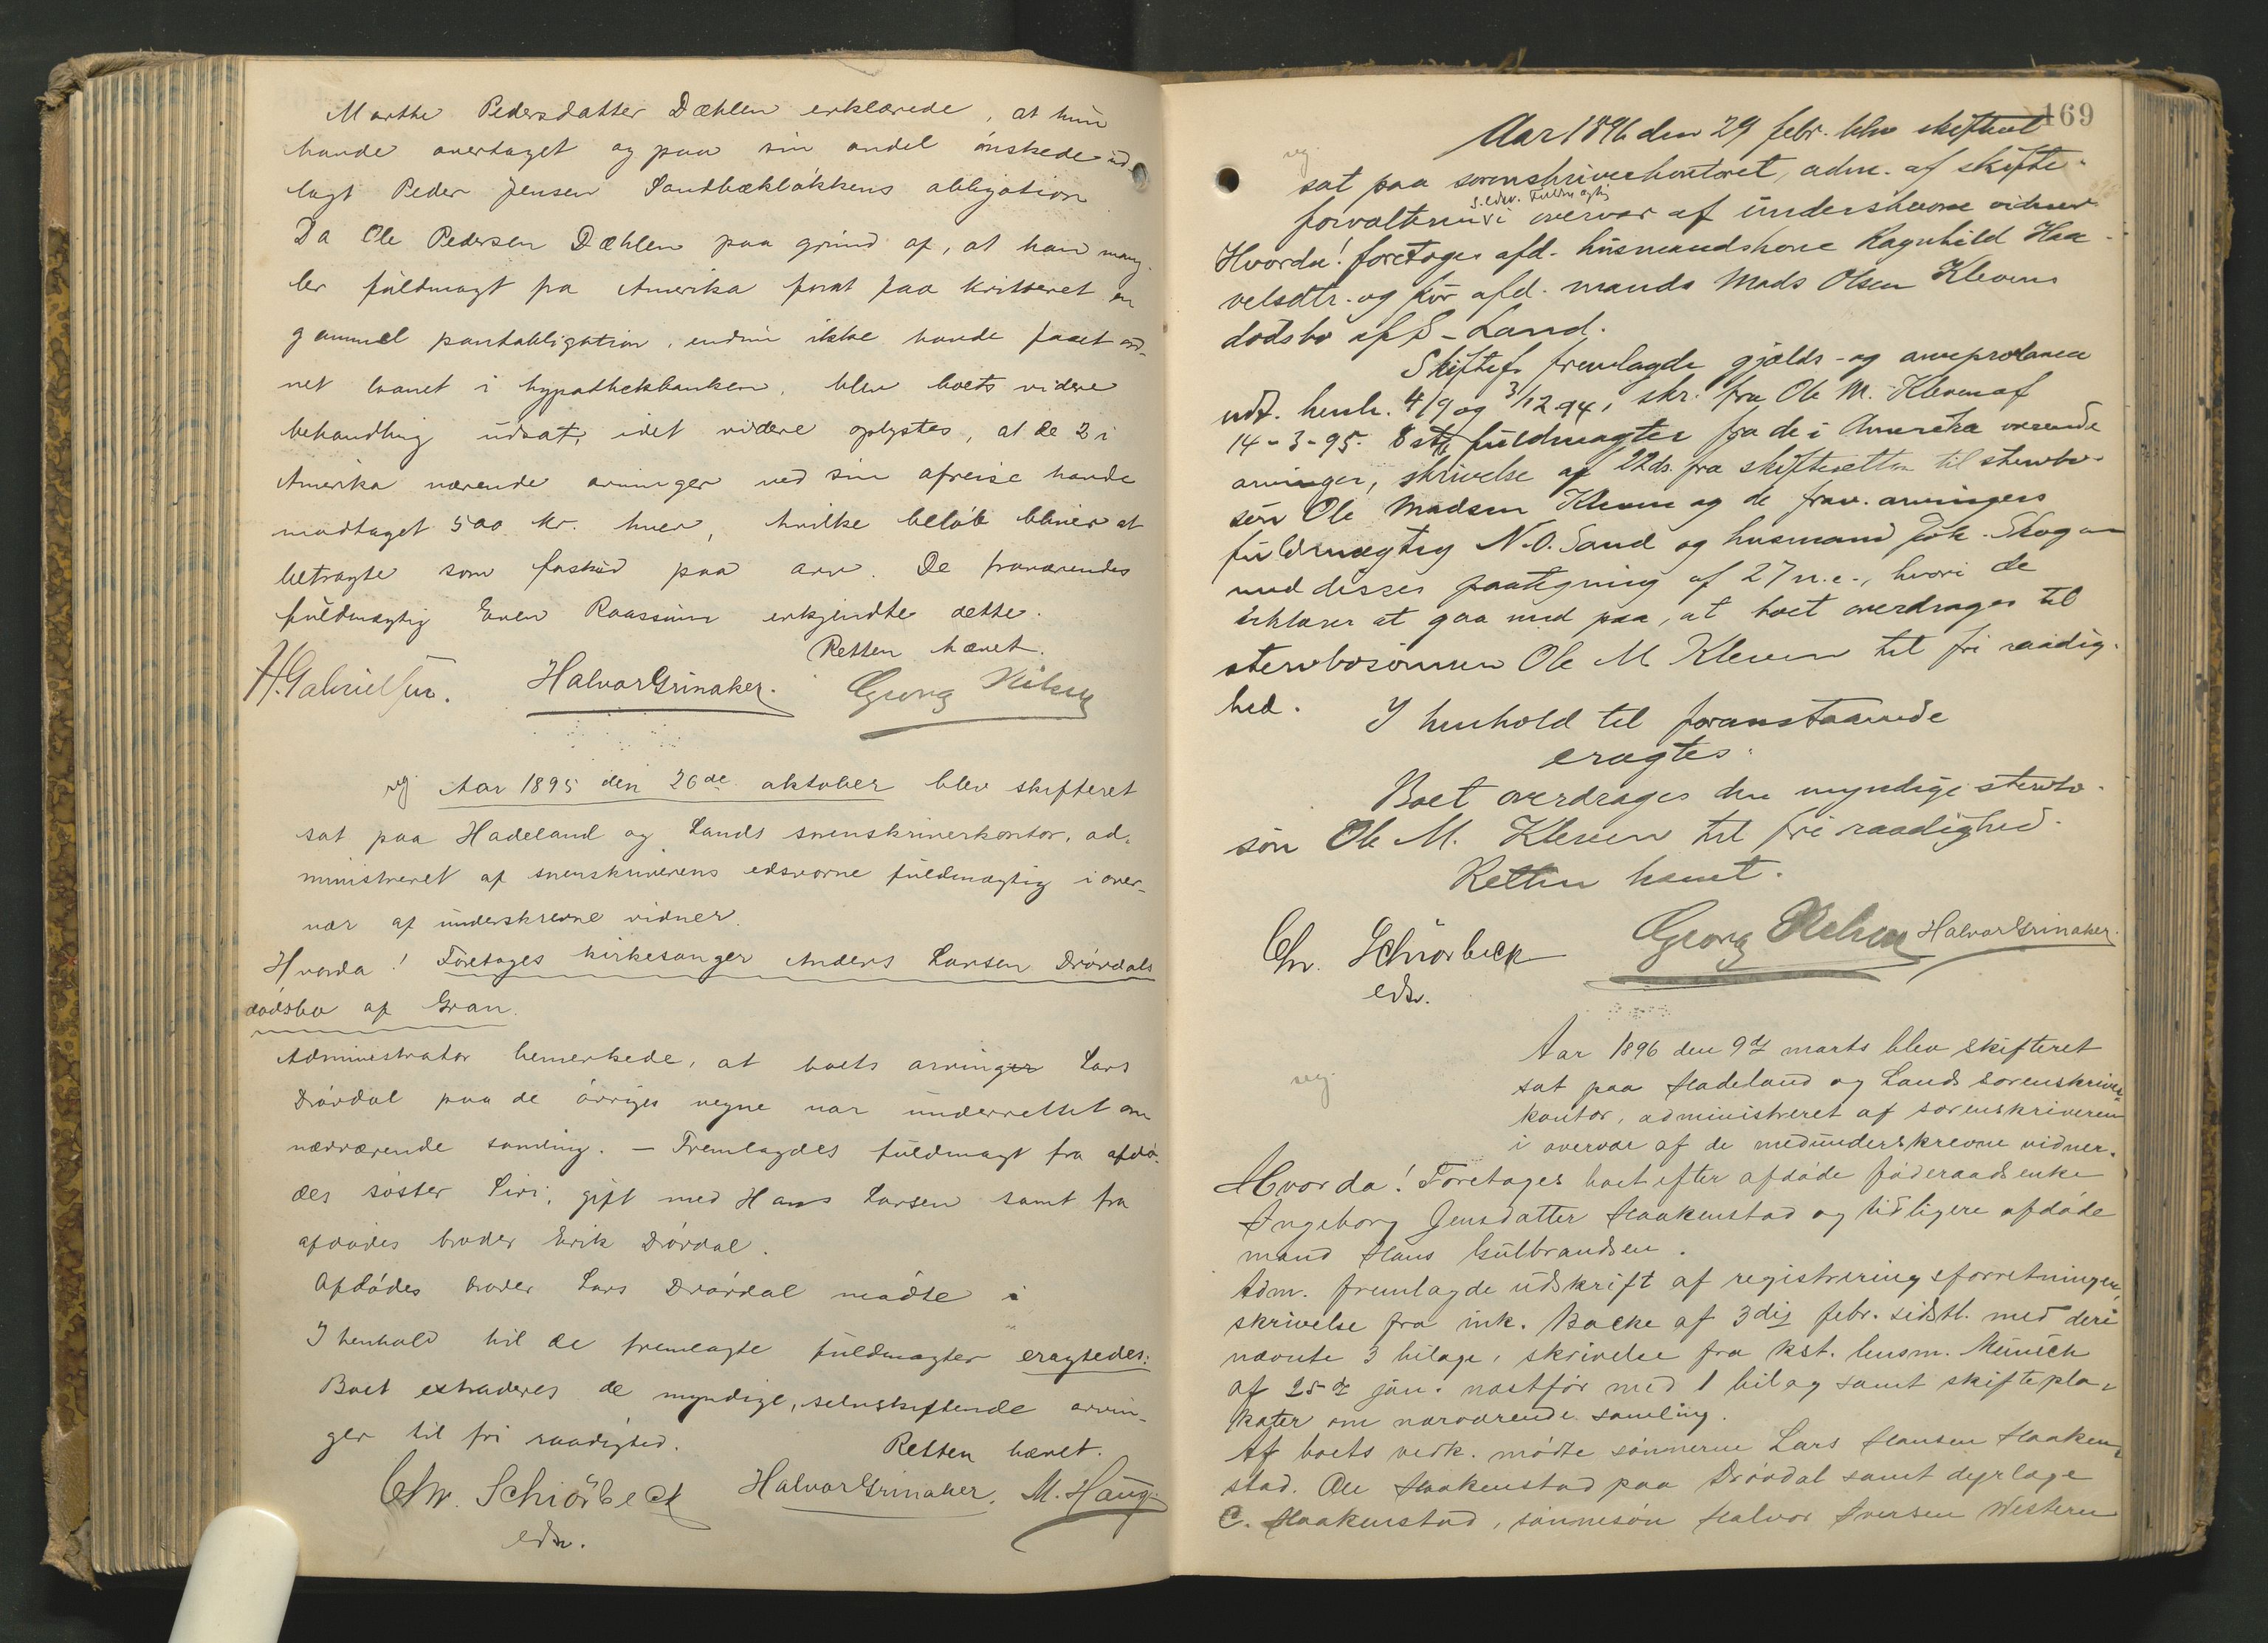 Marthe Pedersdatter Dæhlen erklærede, at hun
havde overtaget og paa sin andel ønskede ud-
lagt Peder Jensen Sandbækløkkens obligation
Da Ole Pedersen Dæhlen paa grund af, at han mang-
ler fuldmagt fra Amerika forat faa kvitteret en
gammel pantobligation, endnu ikke havde faaet ord-
net laanet i hypothekbanken, blev boets videre
behandling udsat, idet videre oplystes, at de 2 i
Amerika værende arvinger ved sin afreise havde
modtaget 500 kr. hver, hvilke beløb bliver at
betragte som forskud paa arv. De fraværendes
fuldmægtig Even Raassum erkjendte dette.
Retten hævet.
H. Gabrielsen. Halvor Grinaker. Georg
Aar 1895 den 26de oktober blev skifteret
sat paa Hadeland og Lands sorenskriverkontor, ad-
ministreret af sorenskriverens edsvorne fuldmægtig i over-
vær af underskrevne vidner.
Hvorda! Foretages kirkesanger Anders Larsen Drøvdals
dødsbo af Gran.
Administrator bemerkede, at boets arvinger Lars
Drøvdal paa de øvriges vegne var underrettet om
nærværende samling. — Fremlagdes fuldmagt fra afdø-
des søster Siri, gift med Hans Larsen samt fra
afdødes broder Erik Drøvdal.
Afdødes broder Lars Drøvdal mødte i
I henhold til de fremlagte fuldmagter eragtedes:
Boet extraderes de myndige, selvskiftende arvin-
ger til fri raadighed.
Retten hævet.
Chr. Schiørbeck Halvor Grinaker. M. Haug.
edsv.
169
Aar 1896 den 29 febr. blev skifteret
sat paa sorenskriverkontoret, adm. af skifte-
s. edsv. Fuldmægtig
forvalteren i overvær af underskrevne vidner
Hvorda! foretages afd. husmandskone Ragnhild Haa-
velsdtr. og før afd. mands Mads Olsen Klevens
dødsbo af S-Land.
Skiftef. fremlagde gjælds- og arveproklama
udst. henh. 4/9 og 3/12 94, skr. fra Ole M. Kleven af
14-3-95. 8 stk fuldmagter fra de i Amerika værende
arvinger, skrivelse af 22 ds. fra skifteretten til stervbo-
søn Ole Madsen Kleven og de frav. arvingers
fuldmægtig N. O. Sand og husmand Joh. Skogen
med disses paategning af 27 n. e., hvori de
erklærer at gaa med paa, at boet overdrages til
stervbosønnen Ole M Kleven til fri raadig-
hed.
I henhold til foranstaaende
eragtes:
Boet overdrages den myndige stervbo-
søn Ole M. Kleven til fri raadighed.
Retten hævet.
Chr. Schiørbeck Georg Halvor Grinaker.
edsv.
Aar 1896 den 9de marts blev skifteret
sat paa Hadeland og Lands sorenskriver-
kontor, administreret af sorenskriveren
i overvær af de medunderskrevne vidner.
Hvorda! Foretages boet efter afdøde føderaadsenke
Ingeborg Jensdatter Haakenstad og tidligere afdøde
mand Hans Gulbrandsen.
Adm. fremlagde udskrift af registreringsforretningen,
skrivelse fra ink. Backe af 3die febr. sidstl. med deri
nævnte 3 bilage, skrivelse fra kst. lensm. Münich
af 25de jan. næstfør med 1 bilag samt skiftepla-
kater om nærværende samling.
Af boets vedk. mødte sønnerne Lars Hansen Haaken-
stad. Ole Haakenstad paa Drøvdal samt dyrlæge
C. Haakenstad, sønnesøn Halvor Iversen Western